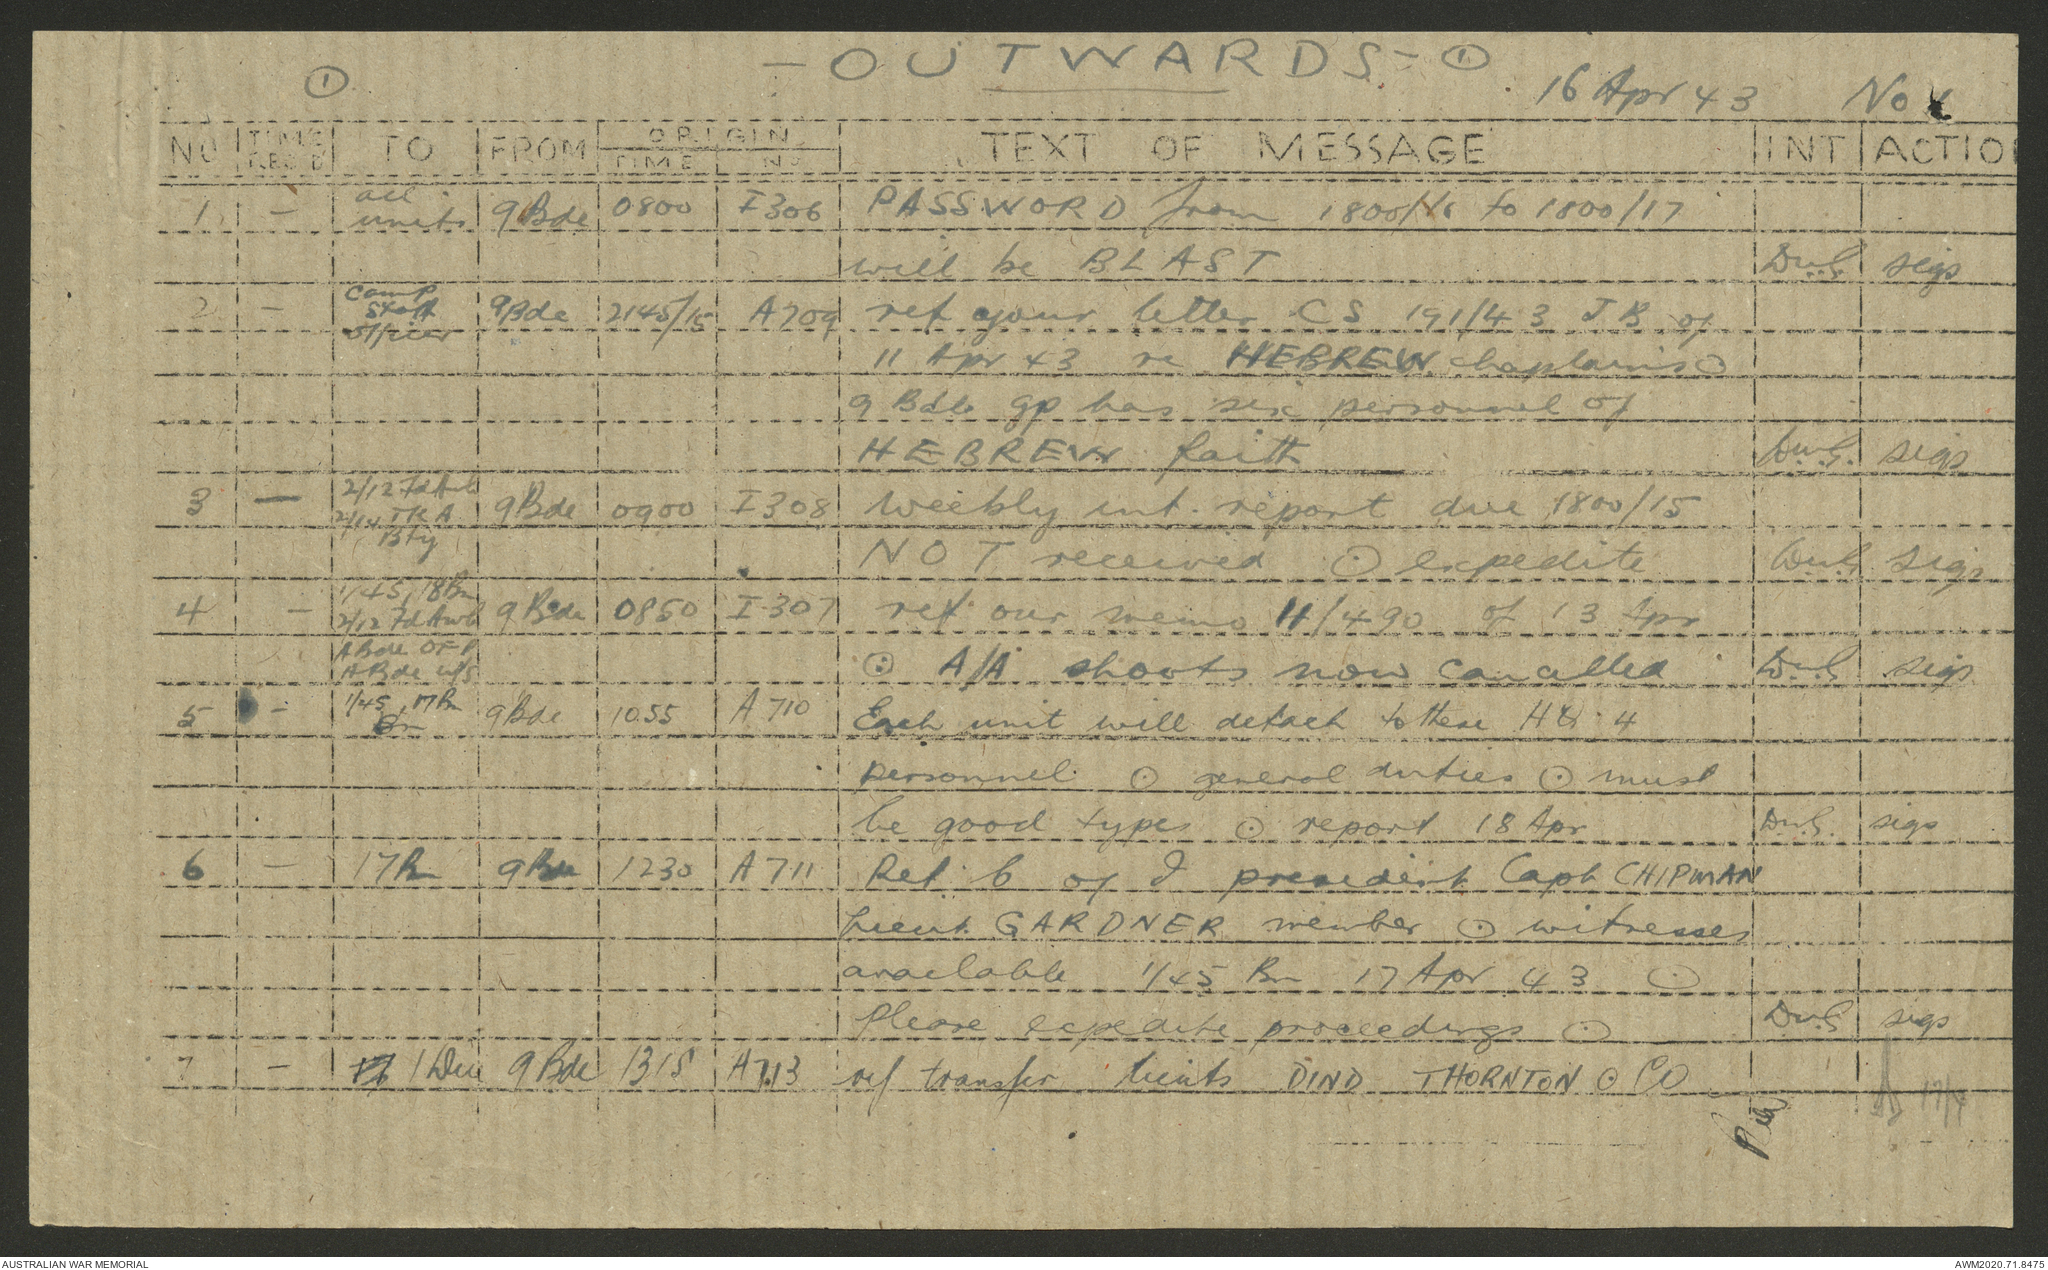 - OUTWARDS - ①
①
16 Apr 43 No
NO TIME REC'D TO FROM ORIGIN TIME NO TEXT OF MESSAGE INT ACTION
1 - all units 9 Bde 0800 I 306 PASSWORD from 1800/16 to 1800/17
will be BLAST sigs
2 - Camp Staff Officer 9 Bde 2145/15 A 709 ref your letter CS 191/43 J.B of
11 Apr 43 re HEBREW chaplains ⊙
9 Bde gp has six personnel of
HEBREW faith sigs
3 - 2/12 Fd Amb 9 Bde 0900 I 308 weekly int. report due 1800/15
Bty
NOT received ⊙ expedite sigs
4 - 1/45, 18 Bn 2/12 Fd Amb 9 Bde 0850 I 307 ref our memo 11/490 of 13 Apr
A Bde OFP
A Bde W/S ⊙ A/A shoots now cancelled sigs
5 - 1/45, 17 Bn 9 Bde 1055 A 710 Each unit will detach to these HQ 4
personnel ⊙ general duties ⊙ must
be good types ⊙ report 18 Apr sigs
6 - 17 Bn 9 Bde 1230 A 711 Ref C of I president Capt CHIPMAN
Lieut. GARDNER member ⊙ witnesses
available 1/45 Bn 17 Apr 43 ⊙
Please expedite proceedings ⊙ sigs
7 - 1 Div 9 Bde 1315 A 713 ref transfer lieuts DIND THORNTON ⊙ CO
17/4
AUSTRALIAN WAR MEMORIAL
AWM2020.71.8475